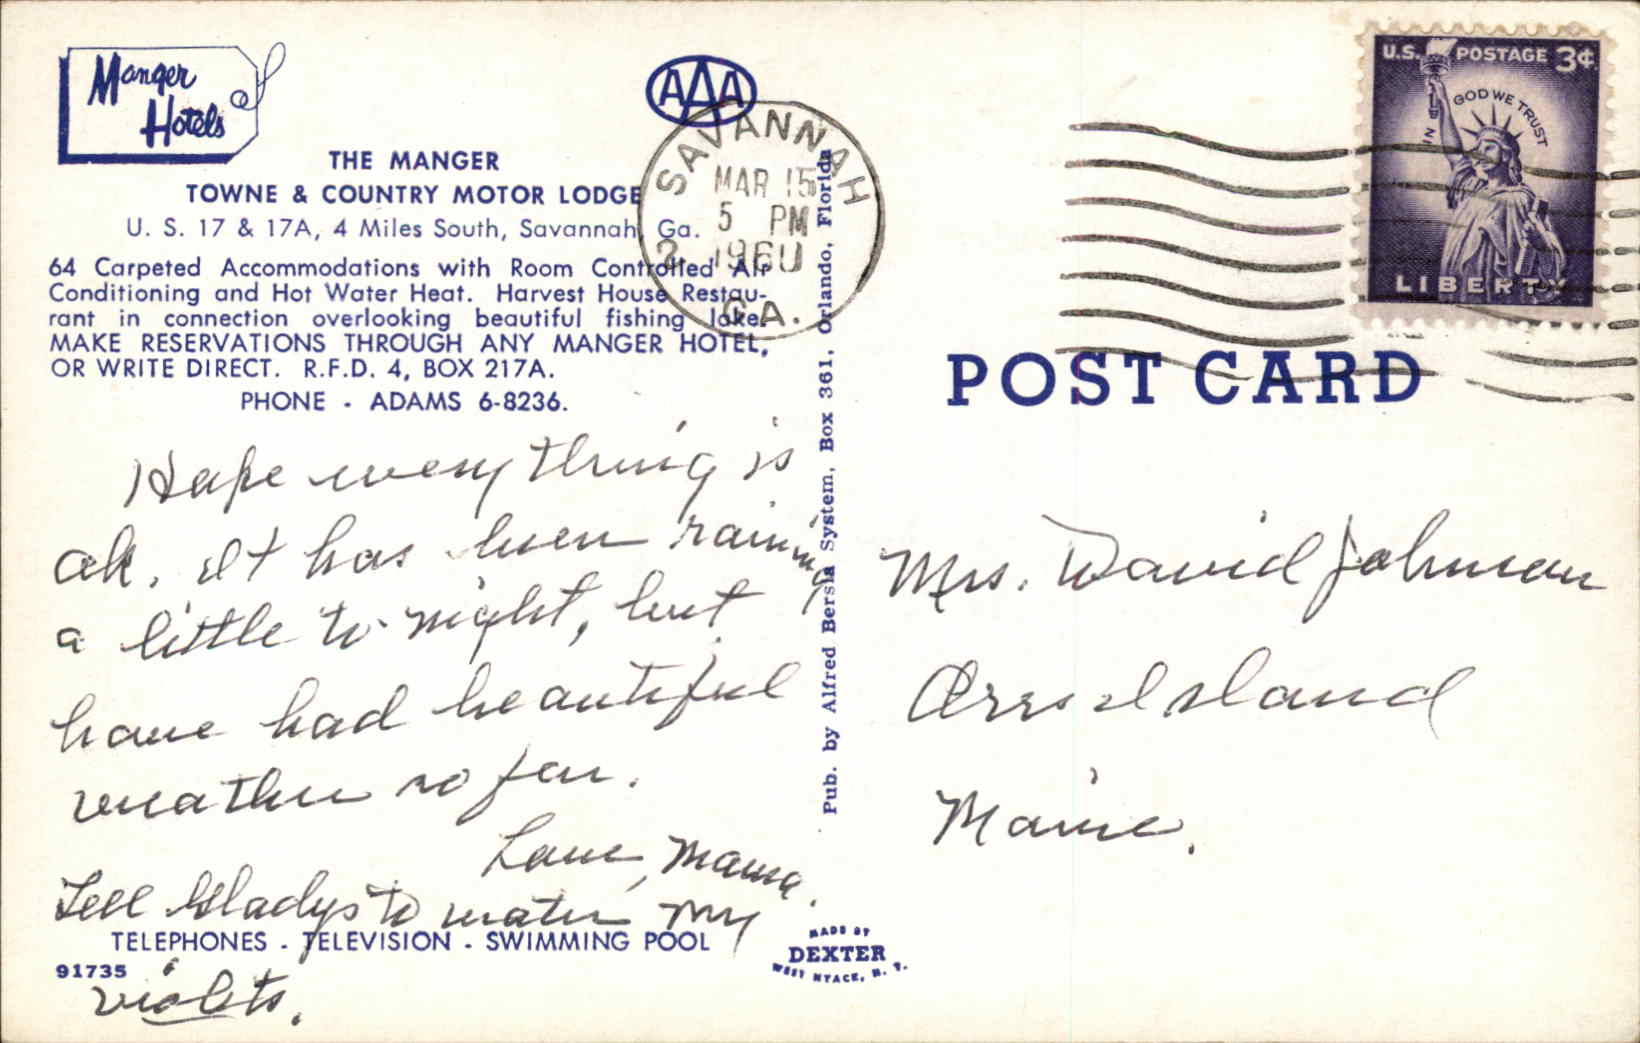 Manger
Hotels
AAA
THE MANGER
TOWNE & COUNTRY MOTOR LODGE
U. S. 17 & 17A, 4 Miles South, Savannah, Ga.
64 Carpeted Accommodations with Room Controlled Air
Conditioning and Hot Water Heat. Harvest House Restau-
rant in connection overlooking beautiful fishing lake.
MAKE RESERVATIONS THROUGH ANY MANGER HOTEL,
OR WRITE DIRECT. R.F.D. 4, BOX 217A.
PHONE - ADAMS 6-8236.
SAVANNAH
MAR 15
5 PM
2 1960
GA.
U.S. POSTAGE 3¢
IN GOD WE TRUST
LIBERTY
POST CARD
Hope everything is
ok. It has been raining
a little to-night, but
have had beautiful
weather so far.
Love, Mama.
Tell Gladys to water my
violets.
TELEPHONES - TELEVISION - SWIMMING POOL
91735
Pub. by Alfred Bersia System, Box 361, Orlando, Florida
MADE BY
DEXTER
WEST NYACK, N. Y.
Mrs. David Johnson
Orrs Island
Maine.